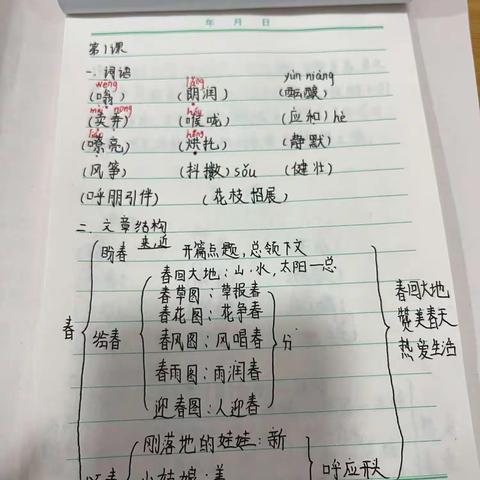 年 月 日
第1课
一、词语
wēng lǎng yùn niàng
(嗡) (朗润) (酝酿)
mài nòng hóu
(卖弄) (喉咙) (应和) hè
liáo hōng
(嘹亮) (烘托) (静默)
(风筝) (抖擞) sǒu (健壮)
(呼朋引伴) (花枝招展)
二、文章结构
盼春 来,近 开篇点题,总领下文
春回大地:山、水,太阳—总
春草图:草报春
春花图:花争春
春 绘春 春风图:风唱春 分
春雨图:雨润春
迎春图:人迎春
春回大地
赞美春天
热爱生活
刚落地的娃娃:新
小姑娘:美
呼应开头